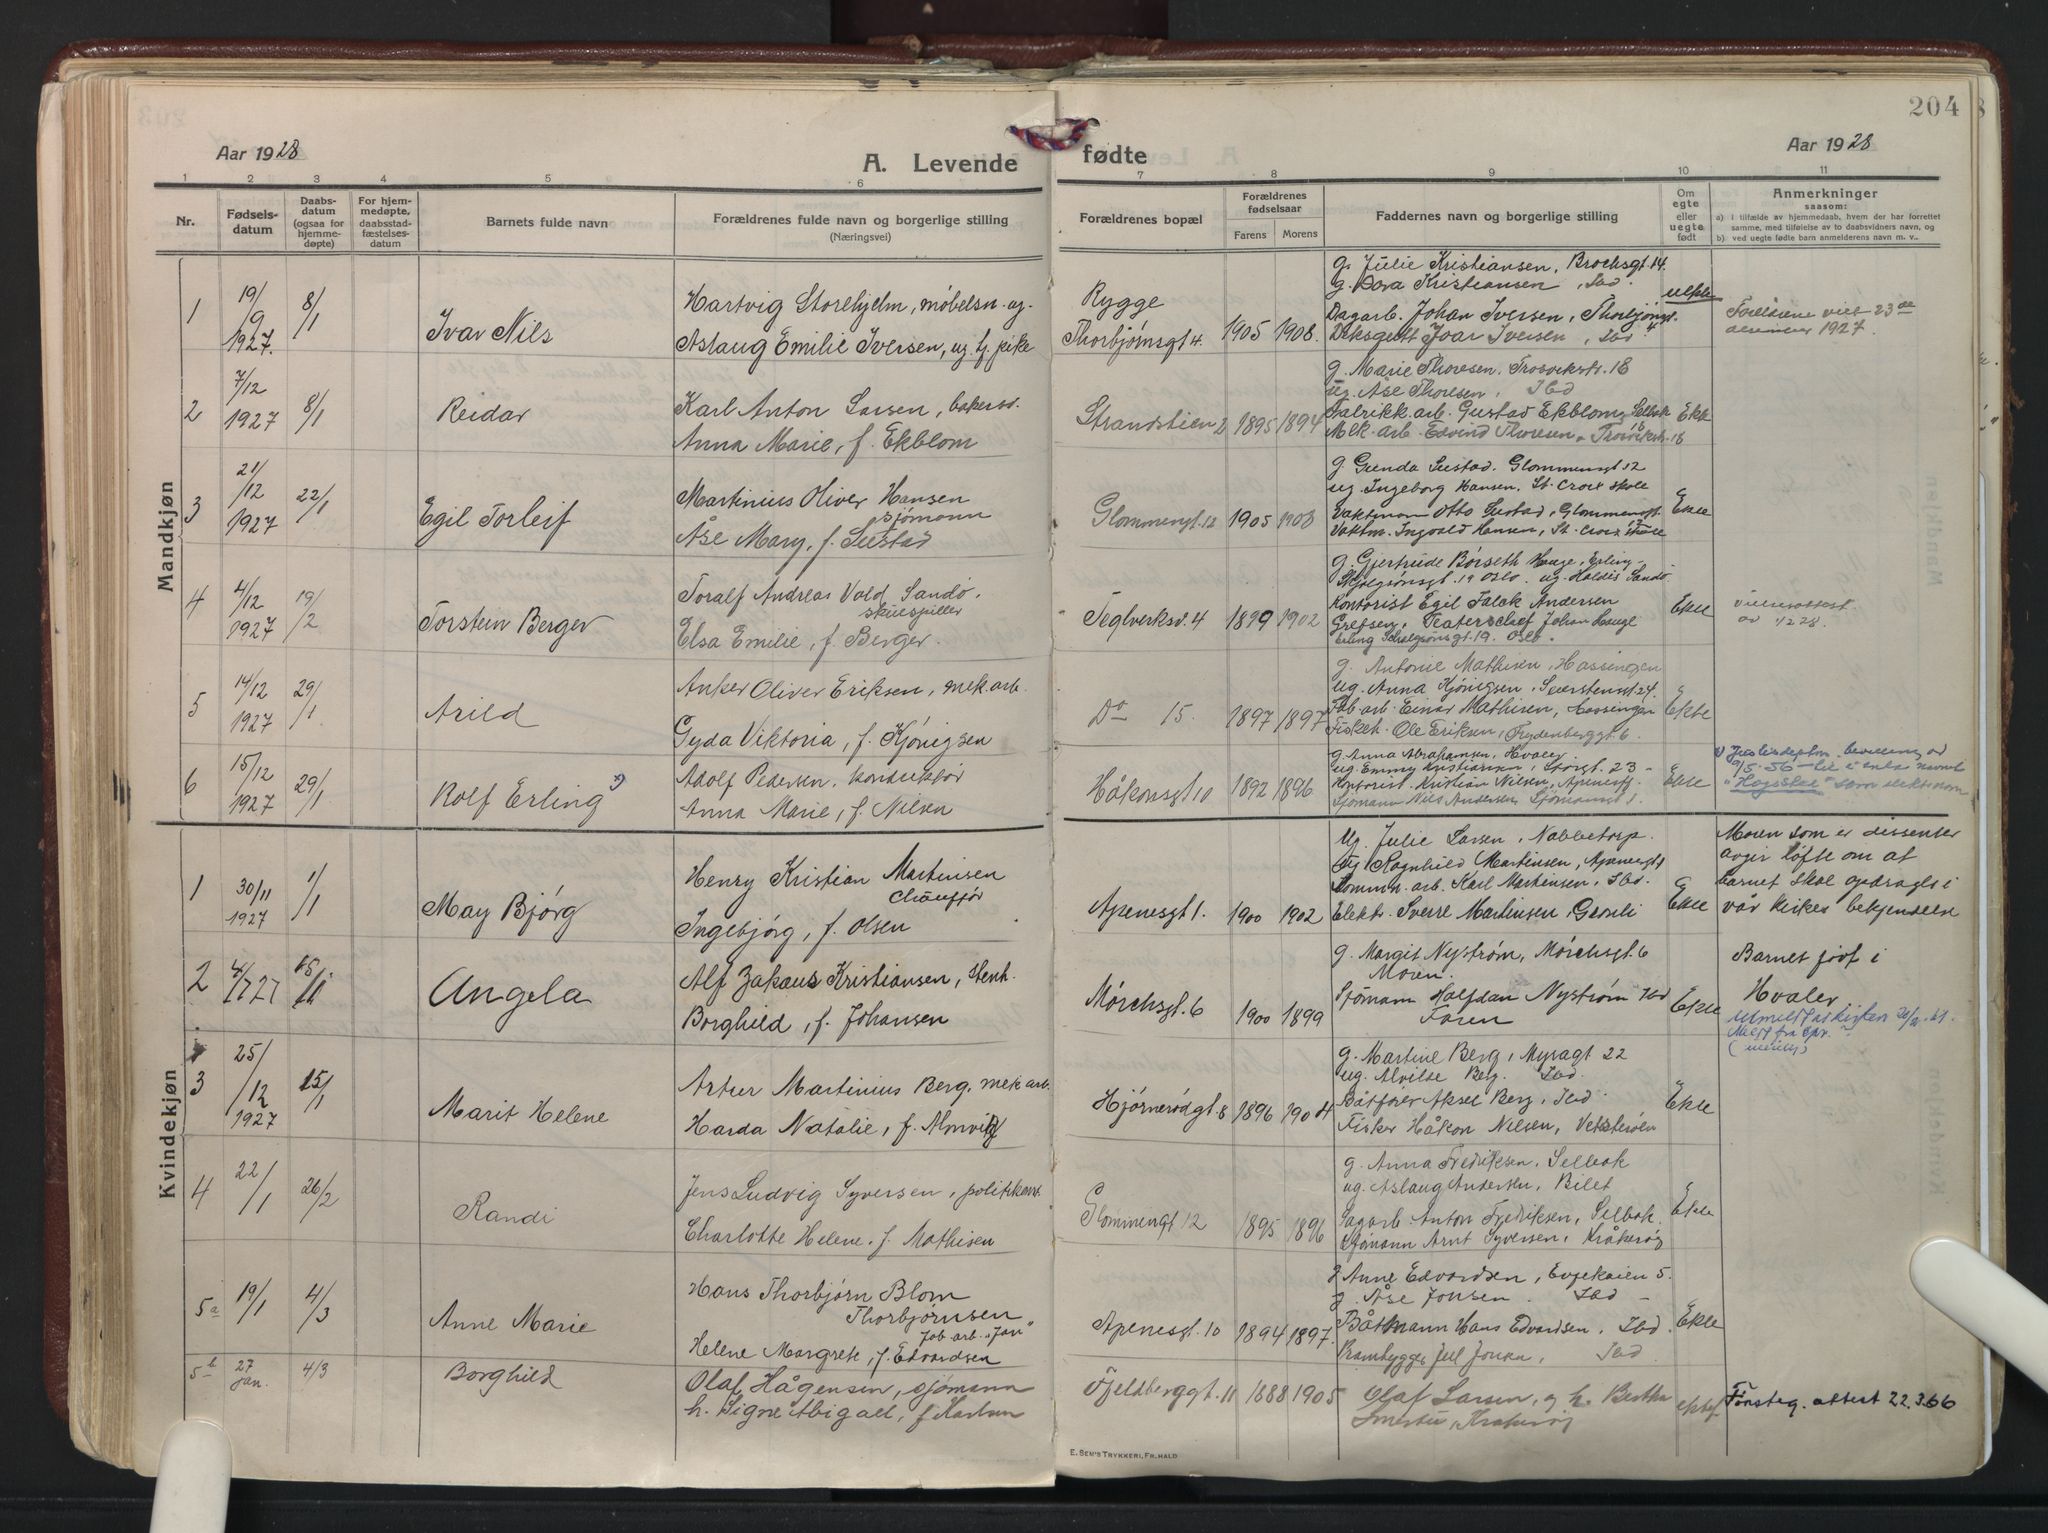 204
Aar 1928
A. Levende
fødte
Aar 1928
1 2 3 4 5 6 7 8 9 10 11
Nr.
Fødsels-
datum
Daabs-
datum
(ogsaa for
hjemme-
døpte)
For hjem-
medøpte,
daabsstad-
fæstelses-
datum
Barnets fulde navn
Forældrenes fulde navn og borgerlige stilling
(Næringsvei)
Forældrenes bopæl
Forældrenes
fødselsaar
Farens Morens
Faddernes navn og borgerlige stilling
Om
egte
eller
uegte
født
Anmerkninger
saasom:
a) i tilfælde av hjemmedaab, hvem der har forrettet
samme, med tilføielse av to daabsvidners navn, og
b) ved uegte fødte barn anmelderens navn m. v.
Mandkjøn
1 19/9 1927. 8/1 Ivar Nils
Hartvig Storehjelm, møbelsn. ug.
Aslaug Emilie Iversen, ug. hj. pike
Rygge
Thorbjørnsgt 4. 1905 1908.
g. Julie Kristiansen, Brochsgt. 14.
g. Dora Kristiansen, Ibd.
Dagarb. Johan Iversen, Thorbjørngt. 4
Deksgutt Ivar Iversen, Ibd
uekte
Foreldrene viet 23de
desember 1927.
2 7/12 1927 8/1 Reidar
Karl Anton Larsen, bakersv.
Anna Marie, f. Ekblom
Strandstien 2 1895 1894
g. Marie Thoresen. Trosvikstr. 18
ug. Åse Thoresen, Ibd
Fabrikk. arb. Gustav Ekblom, Selbak
Mek. arb. Edvind Thoresen, Trosvikstr. 18
Ekte
3 21/12 1927 22/1 Egil Torleif
Martinius Oliver Hansen
sjømann
Åse Mary, f. Sustad
Glommengt. 12 1905 1908
g. Gunda Sustad. Glommengt 12
ug. Ingeborg Hansen, St. Croix skole
Vaktmann Otto Sustad, Glommengt.
Vaktm. Ingvald Hansen, St. Croix skole
Ekte
4 4/12 1927 19/2 Torstein Berger
Toralf Andreas Vold Sandø,
skuespiller
Elsa Emilie, f. Berger.
Teglverksv. 4 1899 1902
g. Gjertrude Børseth Hauge, Erling
Skjalgsønsgt. 19 Oslo. ug. Haldis Sandø
Kontorist Egil Falck Andersen
Grefsen, Teaterchef Johan Hauge
Erling Skjalgsønsgt. 19. Oslo.
Ekte
Vielsesattest
5 14/12 1927 29/1 Arild
Anker Oliver Eriksen, mek. arb.
Gyda Viktoria, f. Kjønigsen
Do 15. 1897 1897
g. Antonie Mathisen, Hassingen
ug. Anna Kjønigsen, 24.
Fab. arb. Einar Mathisen, Hassingen
Fiskeh. Ole Eriksen, Frydenberggt. 6.
Ekte
6 15/12 1927 29/1 Rolf Erling x)
Adolf Pedersen, konduktør
Anna Marie, f. Nilsen
Håkonsgt 10 1892 1896
g. Anna Abrahamsen, Hvaler
ug. Emmy Kristiansen, Storgt. 23
Kontorist Kristian Nilsen, Apenesgt
Sjømann Nils Andersen Sjømannsgt 1.
Ekte
x) Justisdeptm. bevilling av
9/5-56 til å
"Hogsskei" som slektsnavn
Kvindekjøn
1 30/11 1927 1/1 May Bjørg
Henry Kristian Martinsen
Chaufør
Ingebjørg, f. Olsen
Apenesgt 1. 1900 1902
Ug. Julie Larsen, Nabbetorp.
Ug Ragnhild Martinsen, Apenesgt 1
Komm. arb. Karl Martinsen, Ibd.
Elektr. Sverre Martinsen, Grønli
Ekte
Moren som er dissenter
avgir løfte om at
barnet skal opdrages i
vår kirkes bekjendelse
2 4/7 27 15/1 Angela
Alf Zakæus Kristiansen, stenh.
Borghild, f. Johansen
Mørchsgt. 6 1900 1899
g. Margit Nystrøm, Mørchsgt. 6
Moren.
Sjømann Halfdan Nystrøm Ibd
Faren
Ekte
Barnet født i
Hvaler
Utmeldt av kirken
3 25/12 1927 15/1 Marit Helene
Artur Martinius Berg, mek arb.
Harda Natalie, f. Almvig
Hjørnerødgt. 8 1896 1904
g. Martine Berg, Myragt 22
ug. Alvilde Berg. Ibd.
Båtfører Aksel Berg, Ibd
Fisker Håkon Nilsen, Vesterøen
Ekte
4 22/1 26/2 Randi
Jens Ludvig Syversen, politikonst.
Charlotte Helene, f. Mathisen
Glommengt 12 1895 1896
g. Anna Fredriksen, Selbak
ug. Aslaug Andersen, Bilet
Sagarb. Anton Fredriksen, Selbak.
Sjømann Arnt Syversen, Kråkerøy
Ekte
5a 19/1 4/3 Anne Marie
Hans Thorbjørn Blom
Thorbjørnsen
fab. arb. "Jan"
Helene Margrete, f. Edvardsen
Apenesgt. 10 1894 1897.
g. Anne Edvardsen, Evjekaien 5.
g. Åse Jonsen. Ibd
Båtmann Hans Edvardsen, Ibd.
Ibd
Ekte
5b 27 jan. 4/3 Borghild
Olaf Hågensen, sjømann
h. Signe Abigael, f. Karlsen
Fjeldberggt. 11 1888 1905
Olaf Larsen, og h. Bertha
Kråkerøy
ektef
Fonsteg. attest 22.3.66
E. SEM'S TRYKKERI, FR.HALD